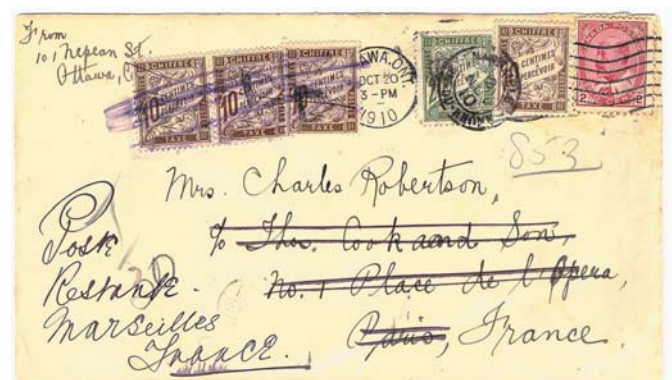 From
101 Nepean St.
Ottawa,
CHIFFRE
10 CENTIMES
À PERCEVOIR
TAXE
CHIFFRE
10 CENTIMES
À PERCEVOIR
TAXE
CHIFFRE
TAXE
AWA, ONT
OCT 20
3-PM
1910
CHIFFRE
TAXE
CHIFFRE
CENTIMES
PERCEVOIR
TAXE
2 2
853
Mrs. Charles Robertson,
c/o Thos. Cook and Son,
No. 1 Place de l'Opera,
Paris, France.
Poste
Restante.
Marseilles
France.